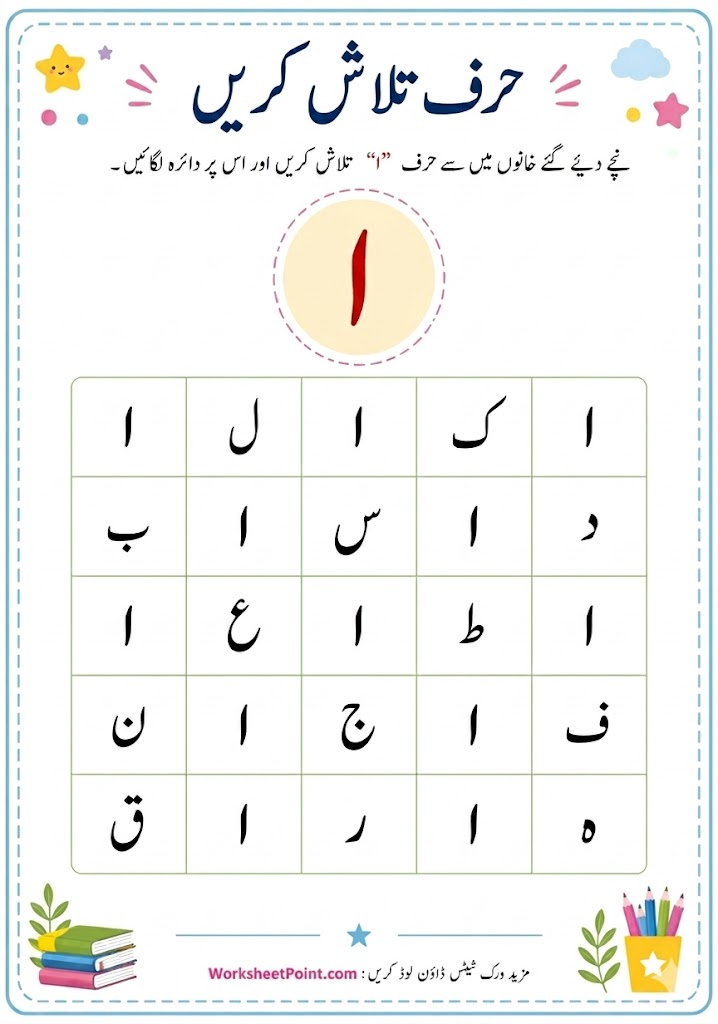 حرف تلاش کریں
نیچے دیئے گئے خانوں میں سے حرف "ا" تلاش کریں اور اس پر دائرہ لگائیں۔
ا
ا ک ا ل ا
د ا س ا ب
ا ط ا ع ا
ف ا ج ا ن
ہ ا ر ا ق
مزید ورک شیٹس ڈاؤن لوڈ کریں: WorksheetPoint.com